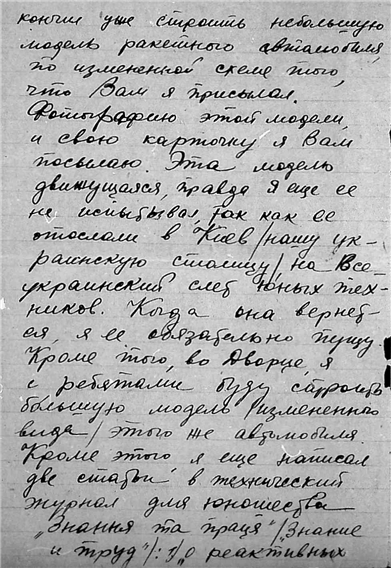 кончил уже строить небольшую
модель ракетного автомобиля,
по измененной схеме того,
что Вам я присылал.
Фотографию этой модели,
и свою карточку я Вам
посылаю. Эта модель
движущаяся, правда я еще ее
не испытывал, так как ее
отослали в Киев /нашу ук-
раинскую столицу/, на Все-
украинский слет юных тех-
ников. Когда она вернет-
ся, я ее обязательно пущу.
Кроме того, во Дворце, я
с ребятами буду строить
большую модель /измененного
вида/ этого же автомобиля.
Кроме этого я еще написал
две статьи в технический
журнал для юношества
„Знання та праця"/„Знание
и труд"/: 1/„О реактивных